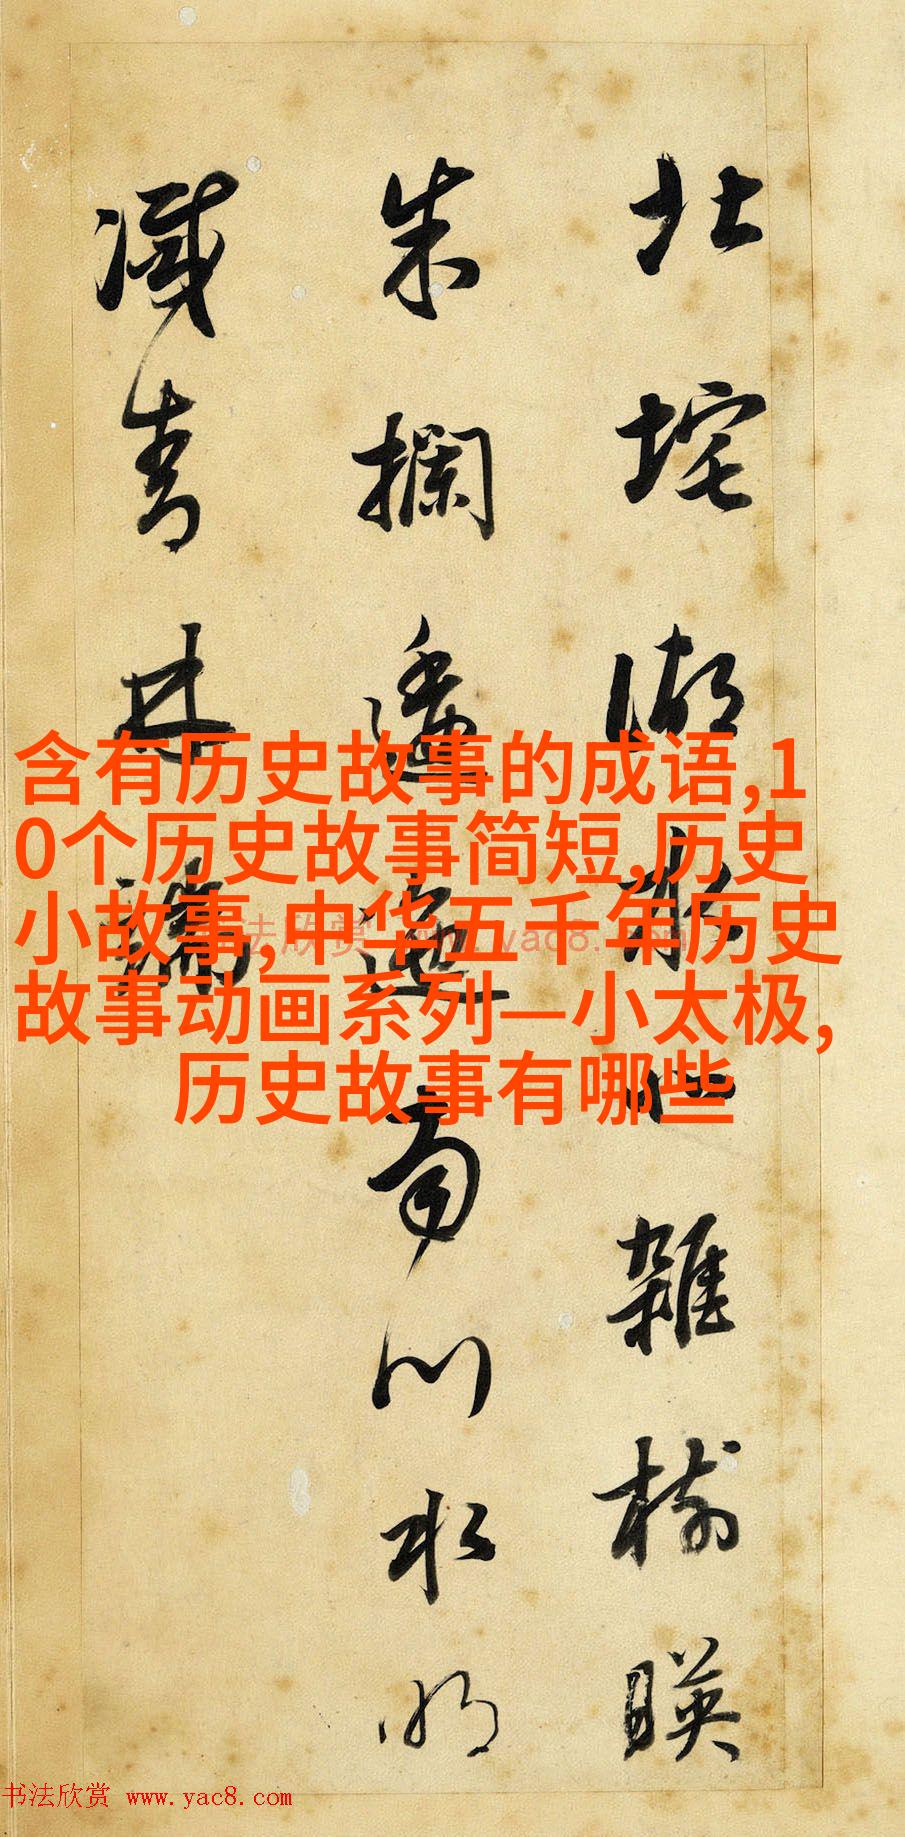 北垞湖水北雜樹暎
朱攔逶迤南川水明
滅青林端
含有历史故事的成语,1
0个历史故事简短,历史
小故事,中华五千年历史
故事动画系列—小太极,
历史故事有哪些
书法欣赏 www.yac8.com